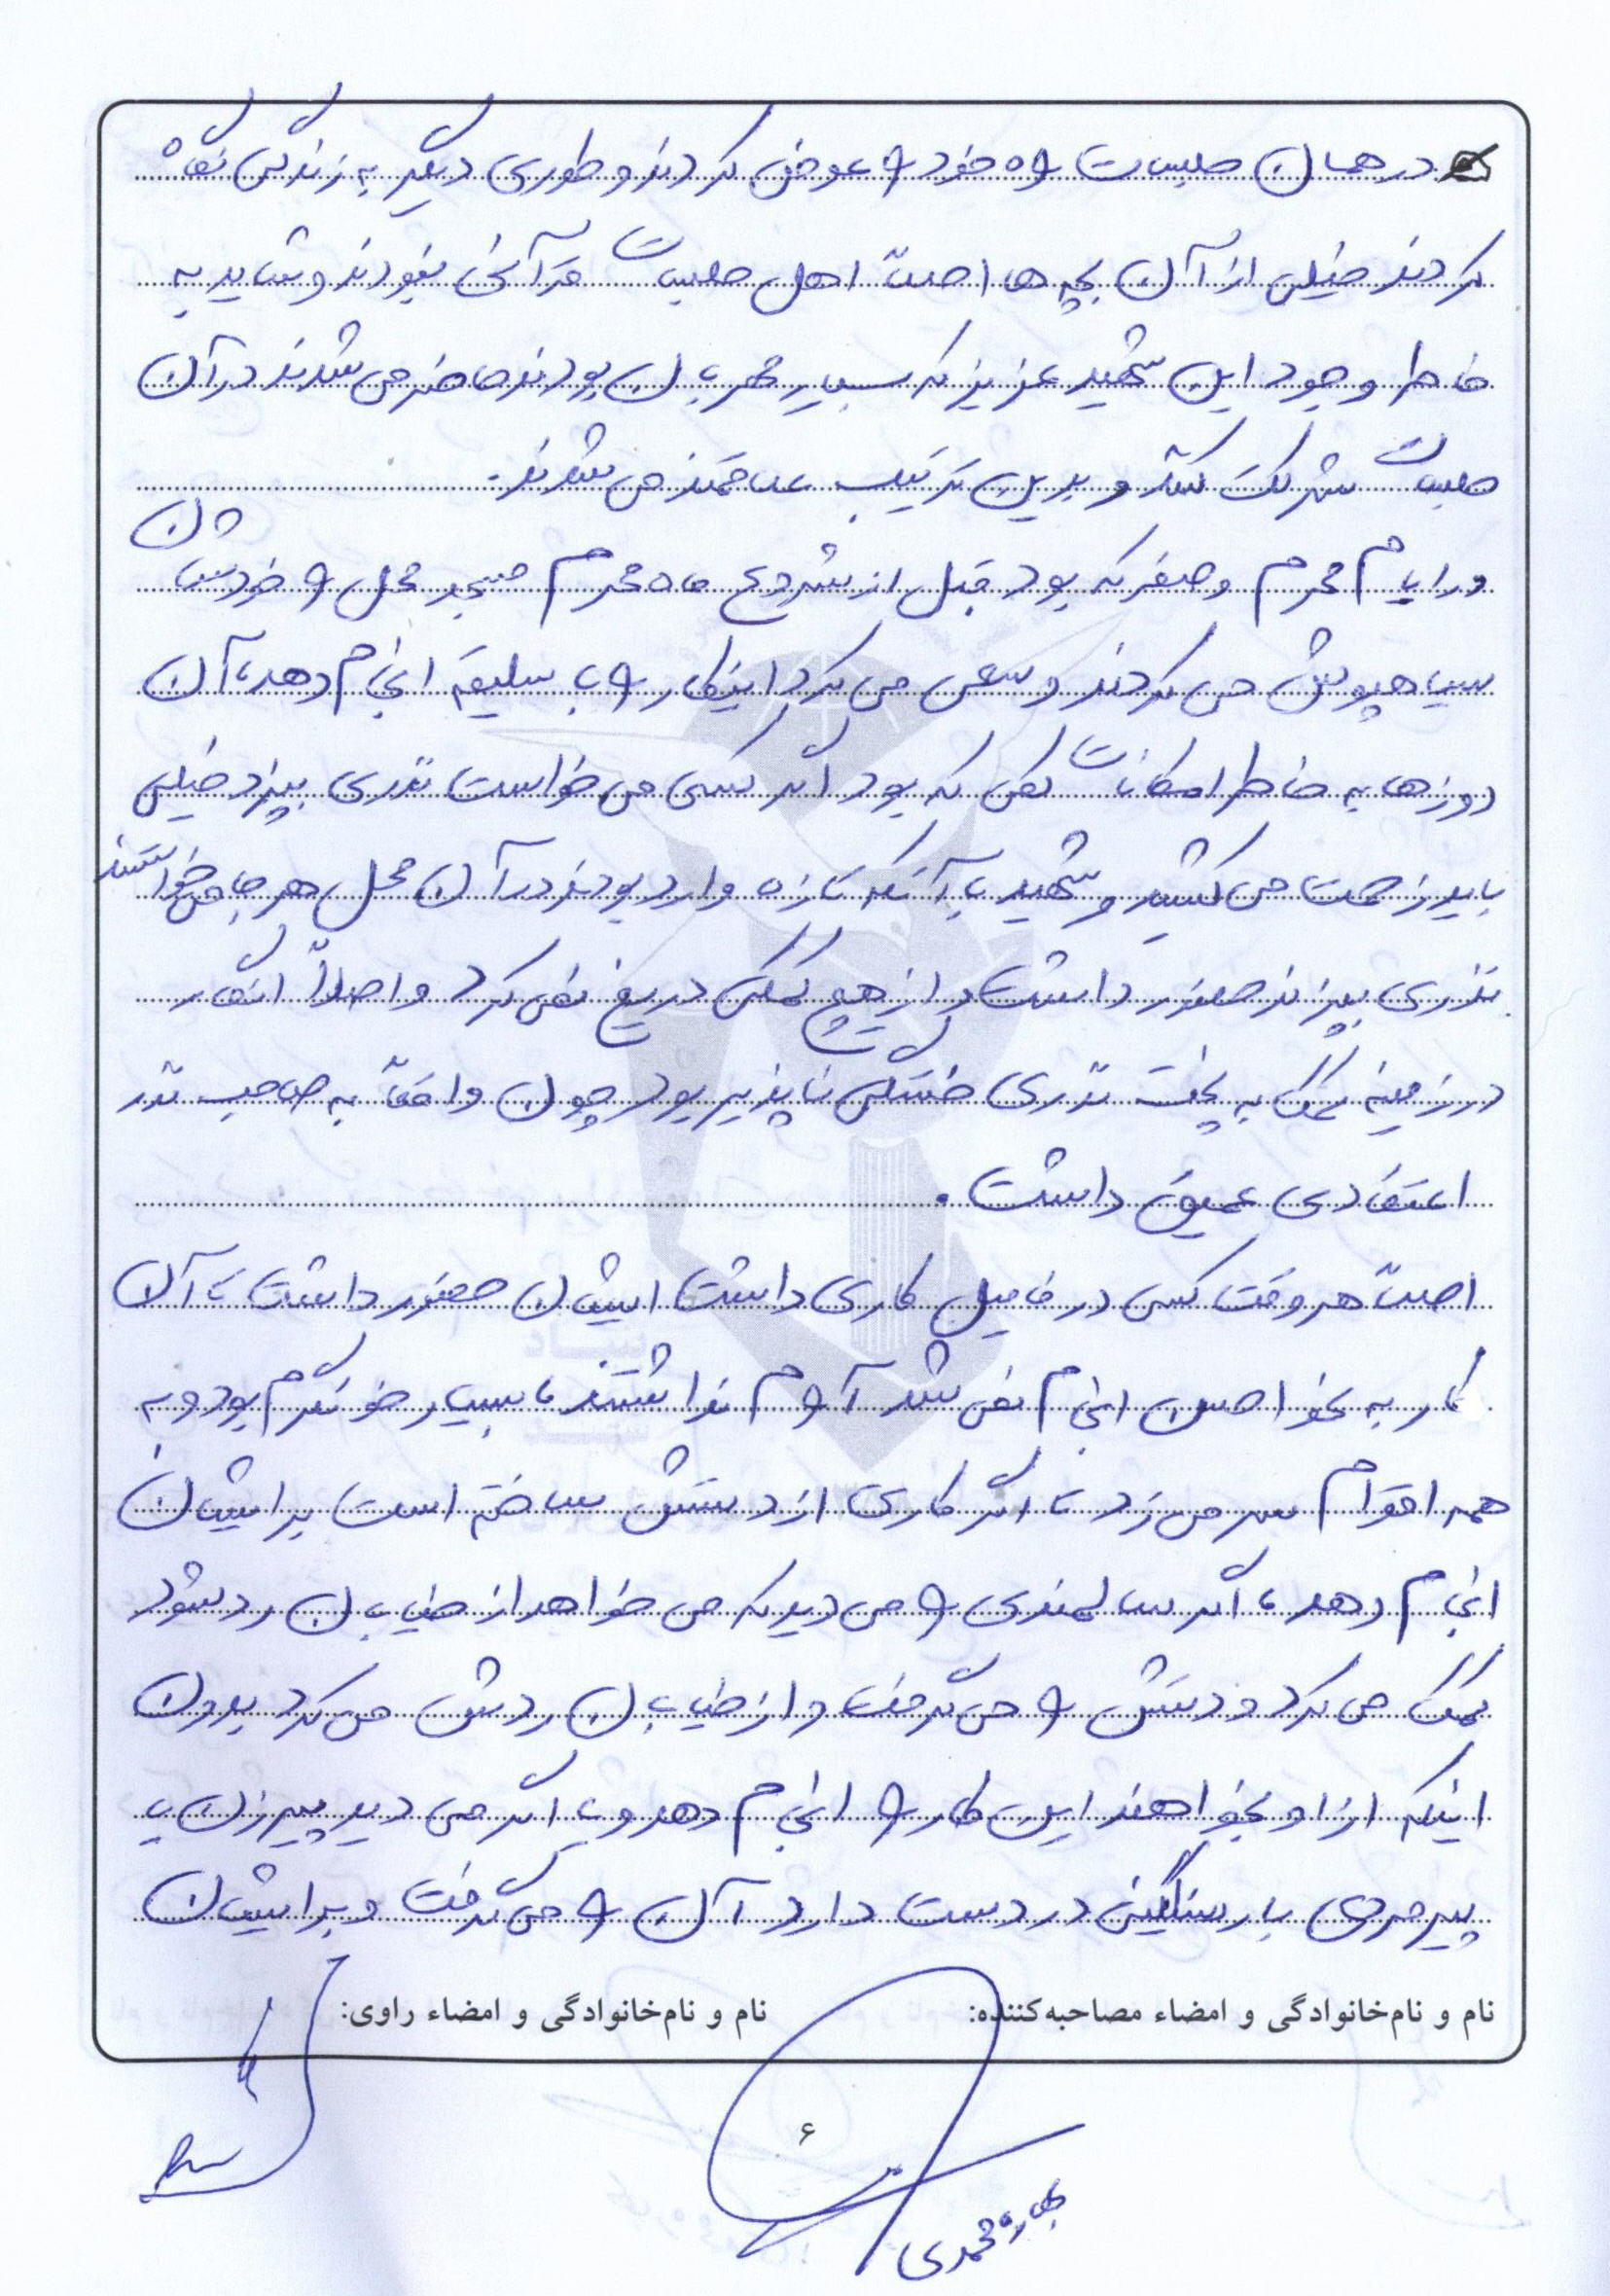 در همان جلسات راه خود را عوض کردند و طوری دیگر به زندگی نگاه
کردند خیلی از آن بچه ها اصلاً اهل جلسات قرآنی نبودند و شاید به
خاطر وجود این شهید عزیز که بسیار مهربان بودند حاضر می شدند در آن
جلسات شرکت کنند و بدین ترتیب علاقمند می شدند.
در ایام محرم و صفر که بود قبل از شروع ماه محرم مسجد محل را خودشان
سیاهپوش می کردند و سعی می کرد اینکار را با سلیقه انجام دهد، آن
روزها به خاطر امکانات کمی که بود اگر کسی می خواست نذری بپزد خیلی
باید زحمت می کشید و شهید با آنکه تازه وارد بودند در آن محل هر جا می خواستند
نذری بپزند حضور داشت و از هیچ کمکی دریغ نمی کرد و اصلاً انگار
در زمینه کمک به پخت نذری خستگی ناپذیر بود چون واقعاً به صاحب نذر
اعتقادی عمیق داشت.
اصلاً هر وقت کسی در فامیل کاری داشت ایشان حضور داشت تا آن
کار به نحو احسن انجام نمی شد آرام نداشتند، بسیار خونگرم بود و به
همه اقوام سر می زد تا اگر کاری از دستش ساخته است برایشان
انجام دهد، اگر سالمندی را می دید که می خواهد از خیابان رد شود
کمک می کرد و دستش را می گرفت و از خیابان ردش می کرد بدون
اینکه از او بخواهند این کار را انجام دهد و یا اگر می دید پیرزن یا
پیرمردی بار سنگینی در دست دارد آن را می گرفت و برایشان
نام و نام‌خانوادگی و امضاء مصاحبه‌کننده: نام و نام‌خانوادگی و امضاء راوی:
۶